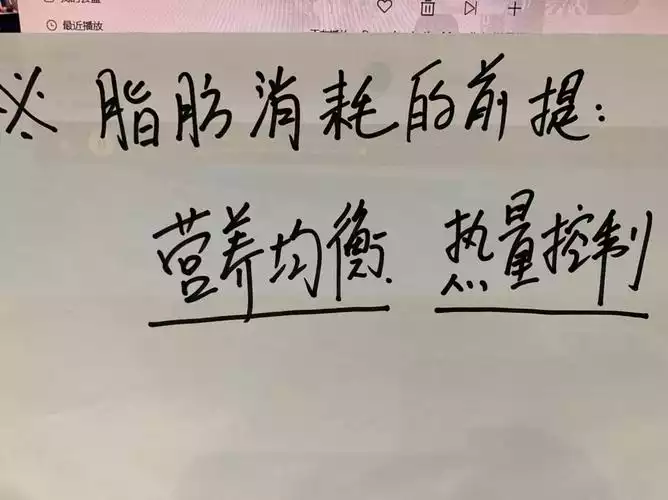 最近播放
※ 脂肪消耗的前提:
营养均衡 热量控制